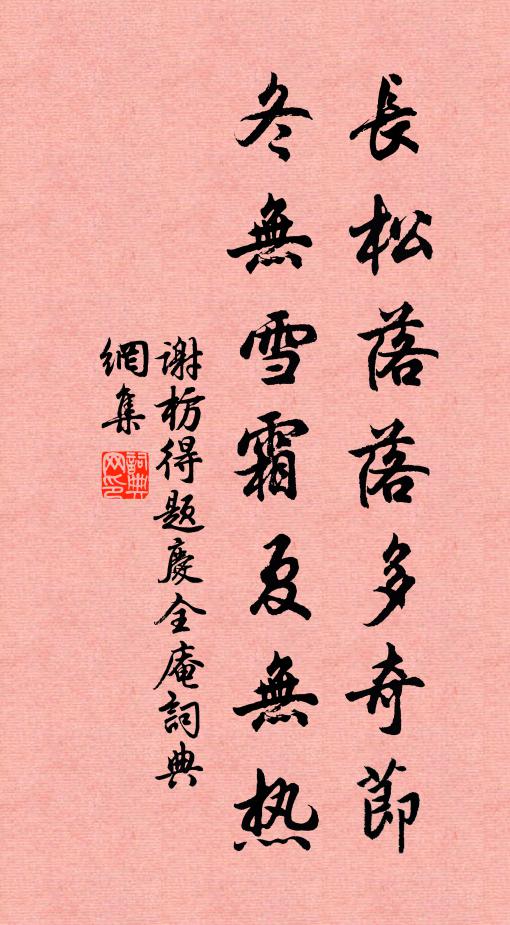 長松落落多奇節
冬無雪霜夏無热
谢枋得题慶全庵詞典
網集
詞典網印